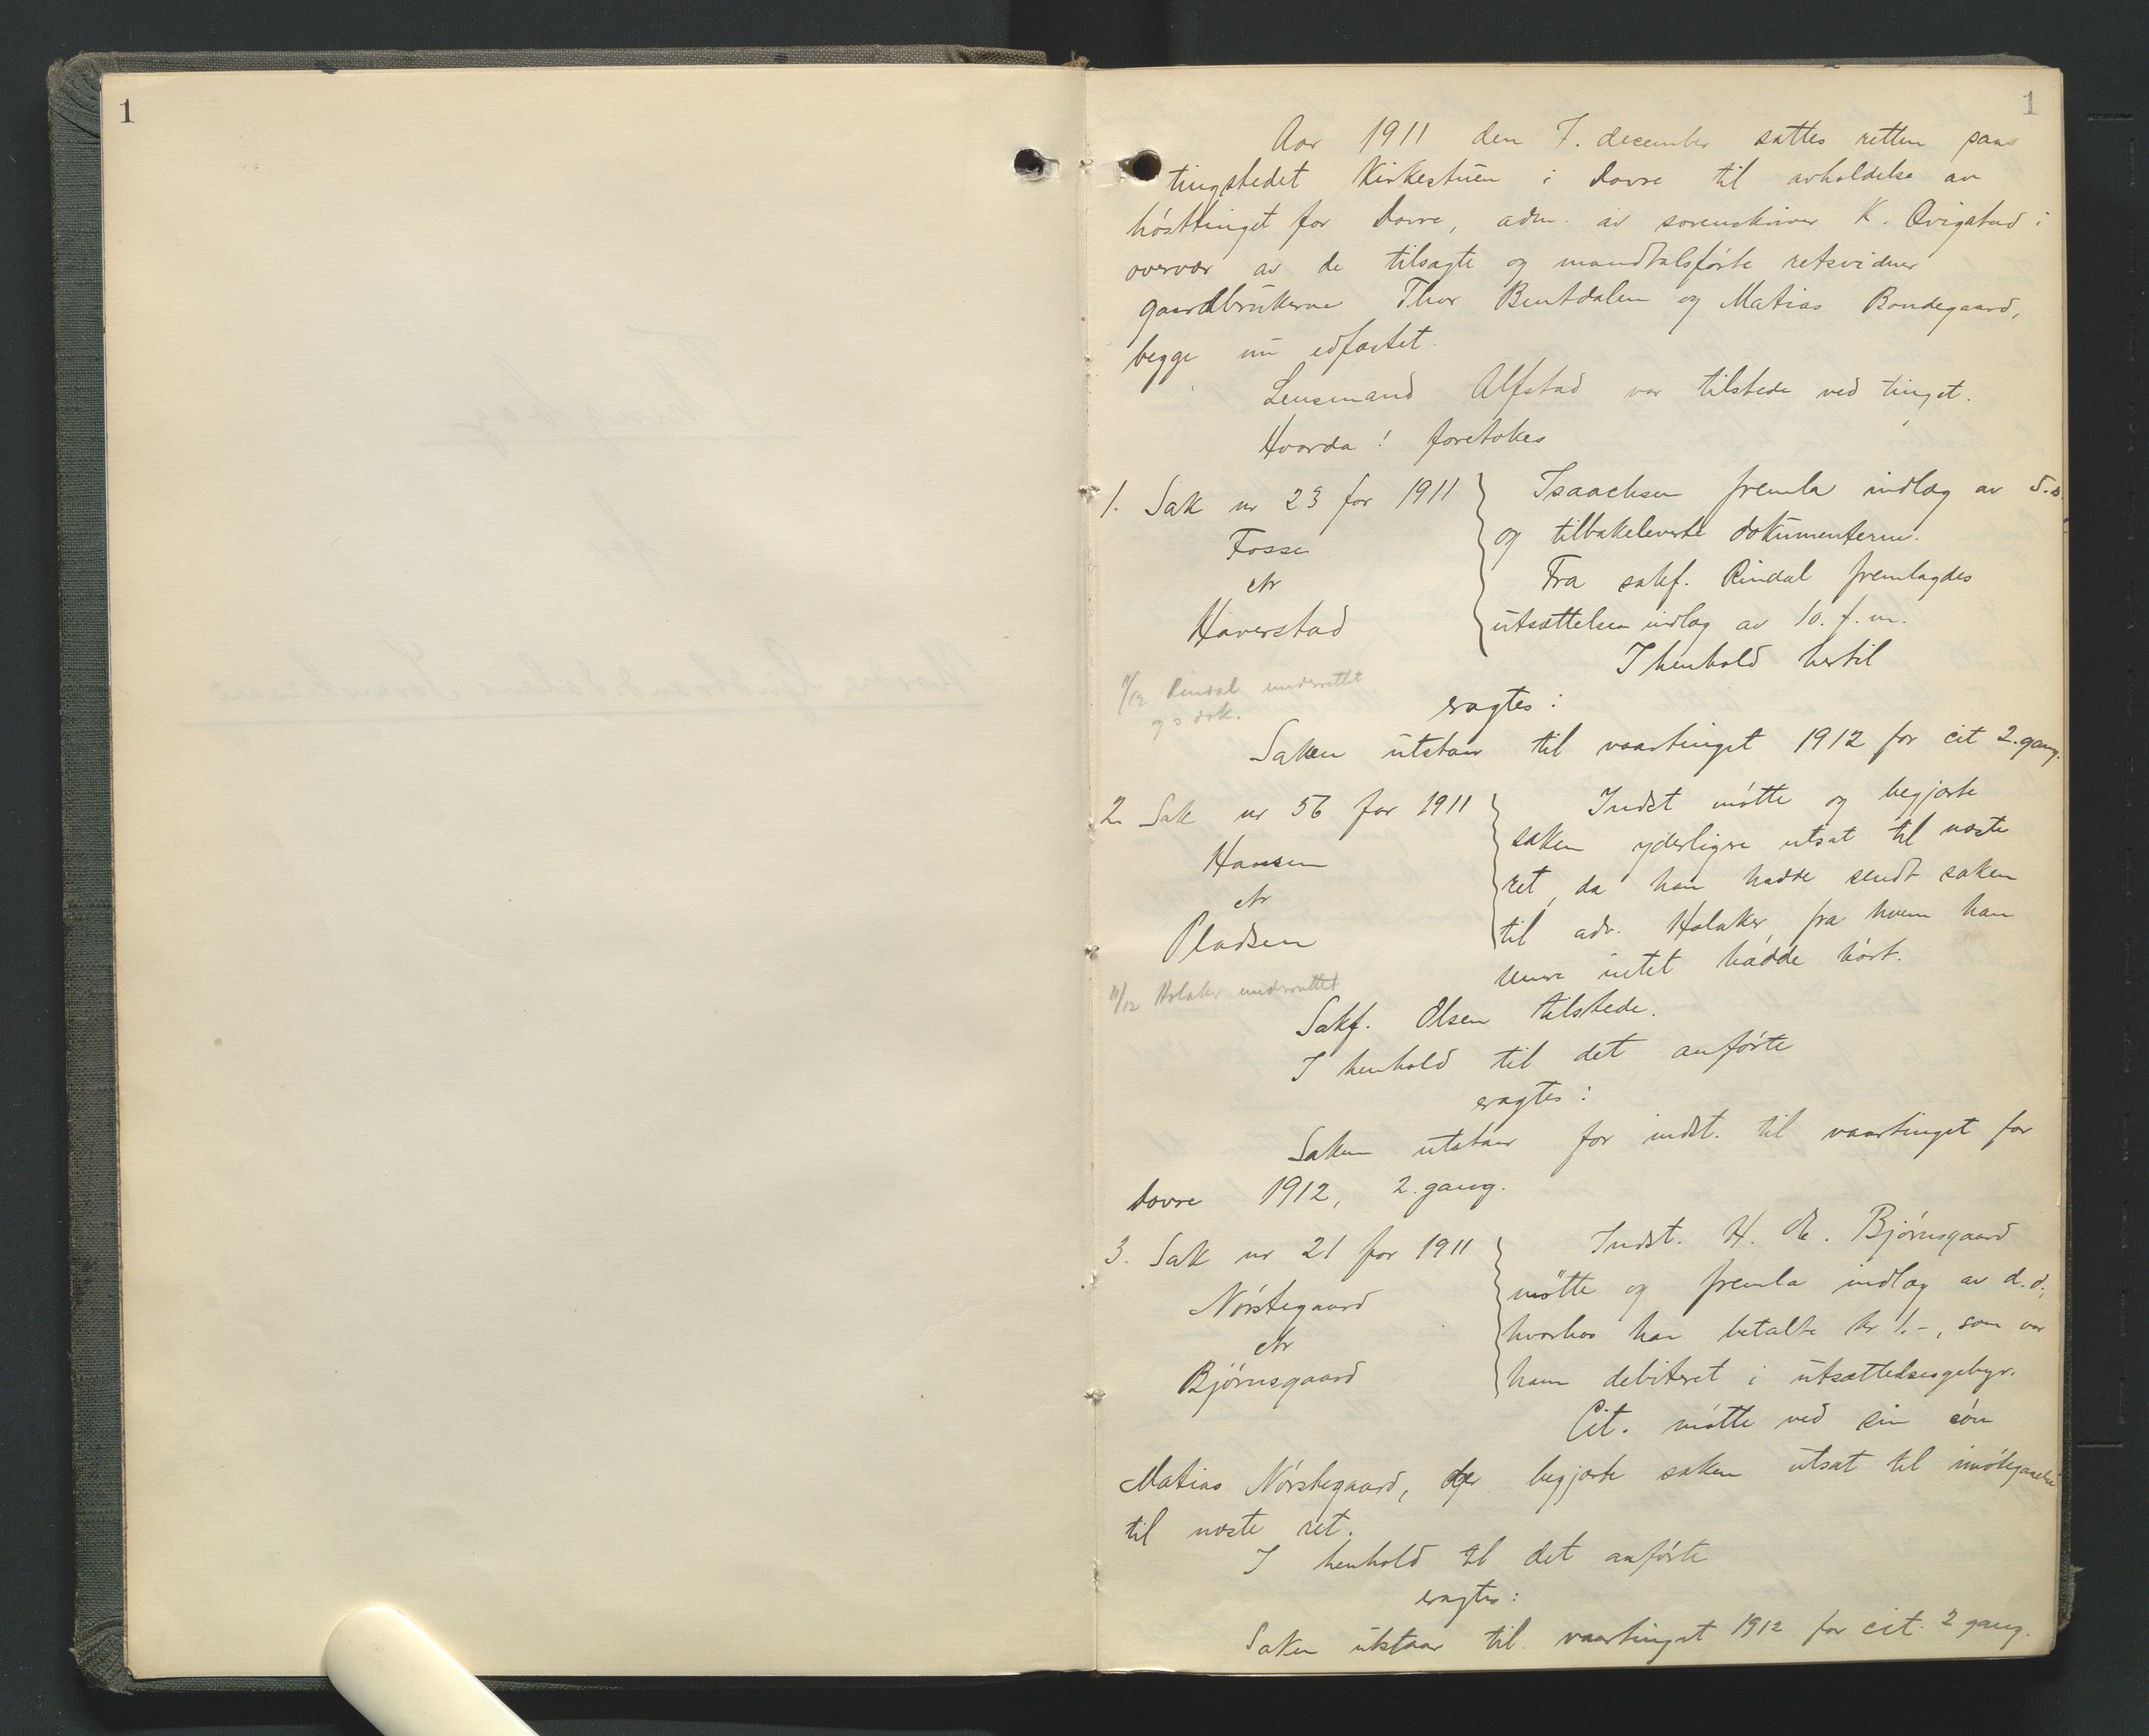 1
1
Aar 1911 den 7. december sattes retten paa
tingstedet Kirkestuen i Dovre til avholdelse av
hösttinget for Dovre, adm. av sorenskriver K. Qvigstad i
overvær av de tilsagte og mandtalsförte retsvidner
gaardbrukerne Thor Bentdalen og Matias Bondegaard,
begge nu edfæstet.
Lensmand Alfstad var tilstede ved tinget.
Hvorda! foretokes
1. Sak nr 23 for 1911
Fosse
ctr
Haverstad
Isaachsen fremla indlæg av 5. d.
og tilbakeleverte dokumenterne.
Fra sakf. Rindal fremlagdes
utsættelsesindlæg av 10. f. m.
I henhold hertil
11/12 Rindal underrettet
og s dok.
eragtes:
Saken utstaar til vaartinget 1912 for cit 2. gang.
2. Sak nr 56 for 1911
Hansen
ctr
Pladsen
Indst mötte og begjærte
saken yderligere utsat til næste
ret, da han hadde sendt saken
til adv. Holaker, fra hvem han
senere intet hadde hört.
11/12 Holaker underrettet
Sakf. Olsen tilstede.
I henhold til det anförte
eragtes:
Saken utstaar for indst. til vaartinget for
Dovre 1912, 2. gang.
3. Sak nr 21 for 1911
Nörstegaard
ctr
Björnsgaard
Indst. H. Björnsgaard
mötte og fremla indlæg av d.d.,
hvorhos han betalte kr 1.-, som var
ham debiteret i utsættelsesgebyr.
Cit. mötte ved sin sön
Matias Nörstegaard, der begjærte saken utsat til imötegaaelse
til næste ret.
I henhold til det anförte
eragtes:
Saken utstaar til vaartinget 1912 for cit. 2 gang.